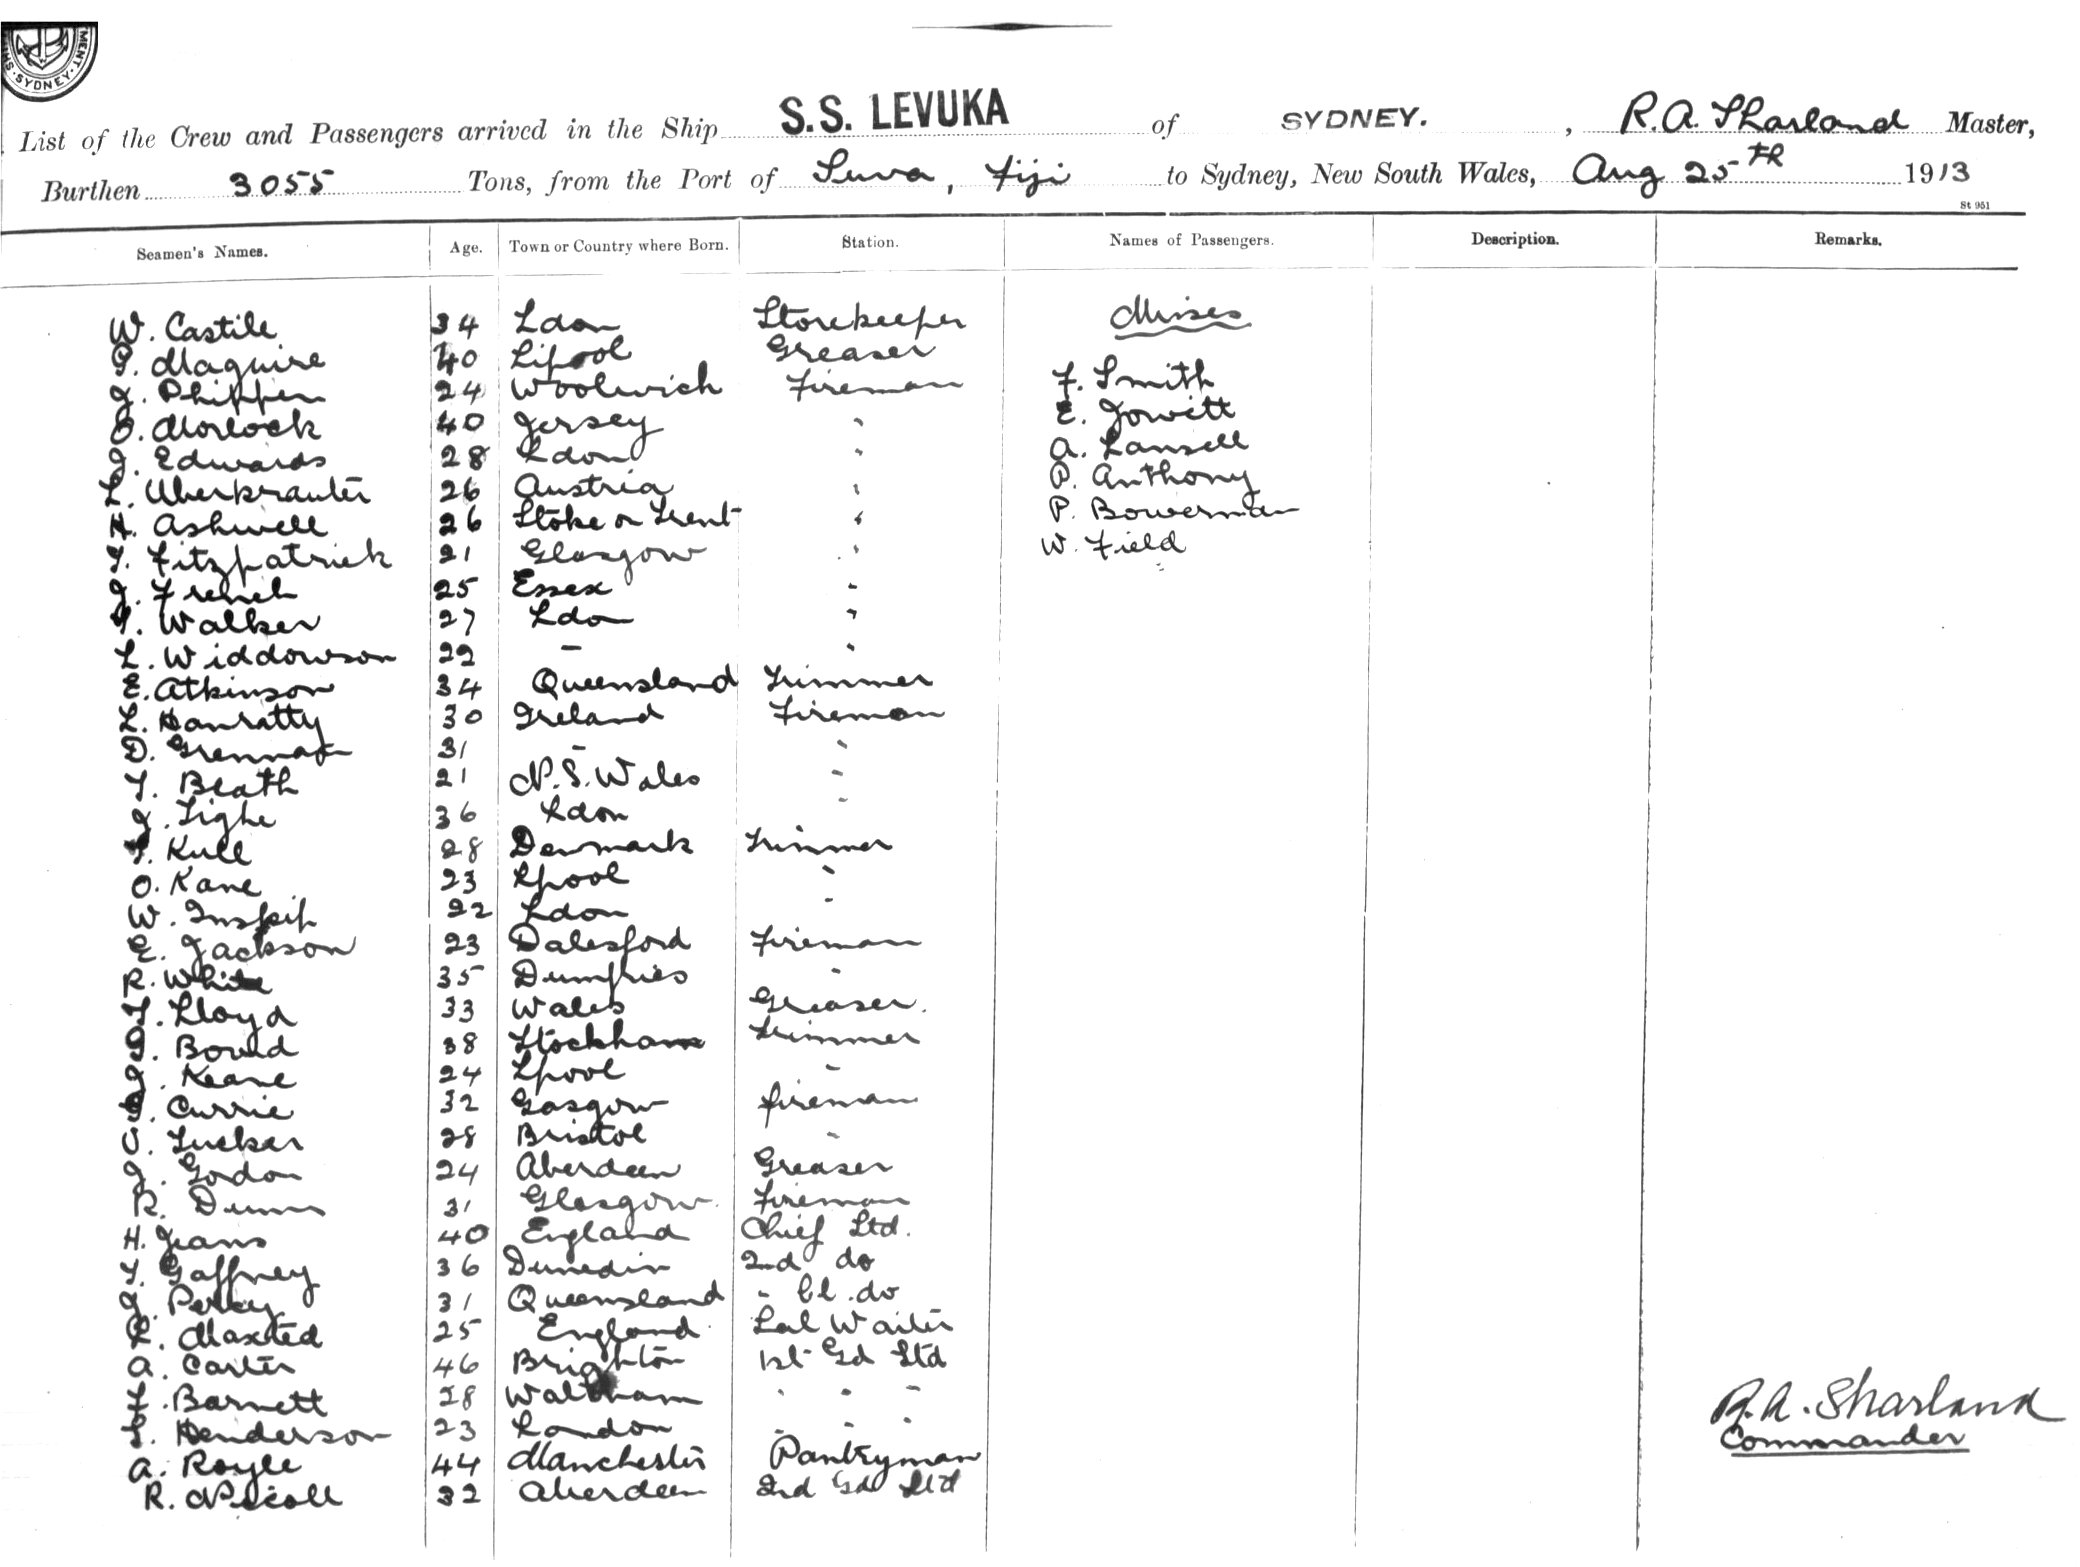 MENT
SYDNEY
List of the Crew and Passengers arrived in the Ship S.S. LEVUKA of SYDNEY. , R.A. Sharland Master,
Burthen 3055 Tons, from the Port of Suva, Fiji to Sydney, New South Wales, Aug 25th 1913
St 951
Seamen's Names. Age. Town or Country where Born. Station. Names of Passengers. Description. Remarks.
W. Castile 34 Ldon Storekeeper Misses
P. Maguire 40 Lipool Greaser
J. Phippen 24 Woolwich Fireman F. Smith
O. Morlock 40 Jersey " E. Jowett
J. Edwards 28 Ldon " A. Lansell
L. Uberkrauter 26 Austria " P. Anthony
H. Ashwell 26 Stoke on Trent " P. Bowerman
T. Fitzpatrick 21 Glasgow " W. Field
J. French 25 Essex "
Walker 27 Ldon "
L. Widdowson 22 - "
E. Atkinson 34 Queensland Trimmer
L. Hanratty 30 Ireland Fireman
D. Grennan 31 - "
T. Beath 21 N.S. Wales "
J. Tighe 36 Ldon "
Kull 28 Denmark Trimmer
O. Kane 23 Lpool "
W. Inskip 22 Ldon "
E. Jackson 23 Dalesford Fireman
R. White 35 Dumfries "
T. Lloyd 33 Wales Greaser.
Bound 38 Trimmer
J. Keane 24 Lpool "
Currie 32 Gasgow fireman
Tucker 28 Bristol "
J. Gordon 24 Aberdeen Greaser
R. Dunn 31 Glasgow Fireman
H. Jeans 40 England Chief Std.
T. Gaffney 36 Dunedin 2nd do
J. Percy 31 Queensland " Cl. do
R. Maxted 25 England Sal Waiter
A. Carter 46 Brighton 1st Gd Std
F. Barnett 28 Waltham " " "
Henderson 23 London " " "
A. Royle 44 Manchester Pantryman
R. Nicoll 32 Aberdeen 2nd Gd Std
R.A. Sharland
Commander